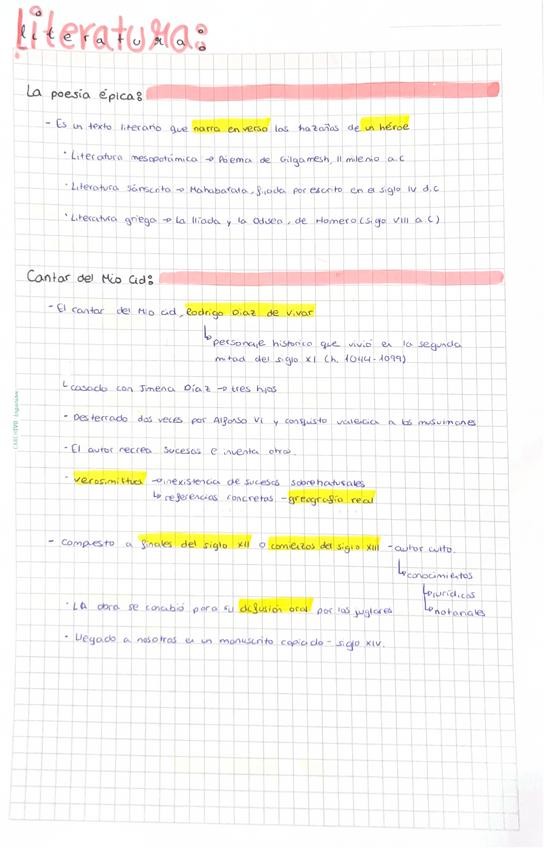 Literatura:
La poesía épica:
- Es un texto literario que narra en verso las hazañas de un héroe
· Literatura mesopotámica → Poema de Gilgamesh, II milenio a.C
· Literatura sánscrita → Mahabarata, fijada por escrito en el siglo IV d.C
· Literatura griega → La Ilíada y la Odisea, de Homero (siglo VIII a.C)
Cantar del Mio Cid:
- El cantar del Mio Cid, Rodrigo Díaz de Vivar
↳ personaje histórico que vivió en la segunda
mitad del siglo XI (h. 1044-1099)
↳ casado con Jimena Díaz → tres hijos
· Desterrado dos veces por Alfonso VI y conquisto valencia a los musulmanes
· El autor recrea sucesos e inventa otros.
· verosimilitud → inexistencia de sucesos sobrenaturales
↳ referencias concretas - greografía real
- Compuesto a finales del siglo XII o comienzos del siglo XIII - autor culto.
↳ conocimientos
↳ jurídicos
· LA obra se concibió para su difusión oral por los juglares
↳ notariales
· Llegado a nosotros en un manuscrito copiado - siglo XIV.